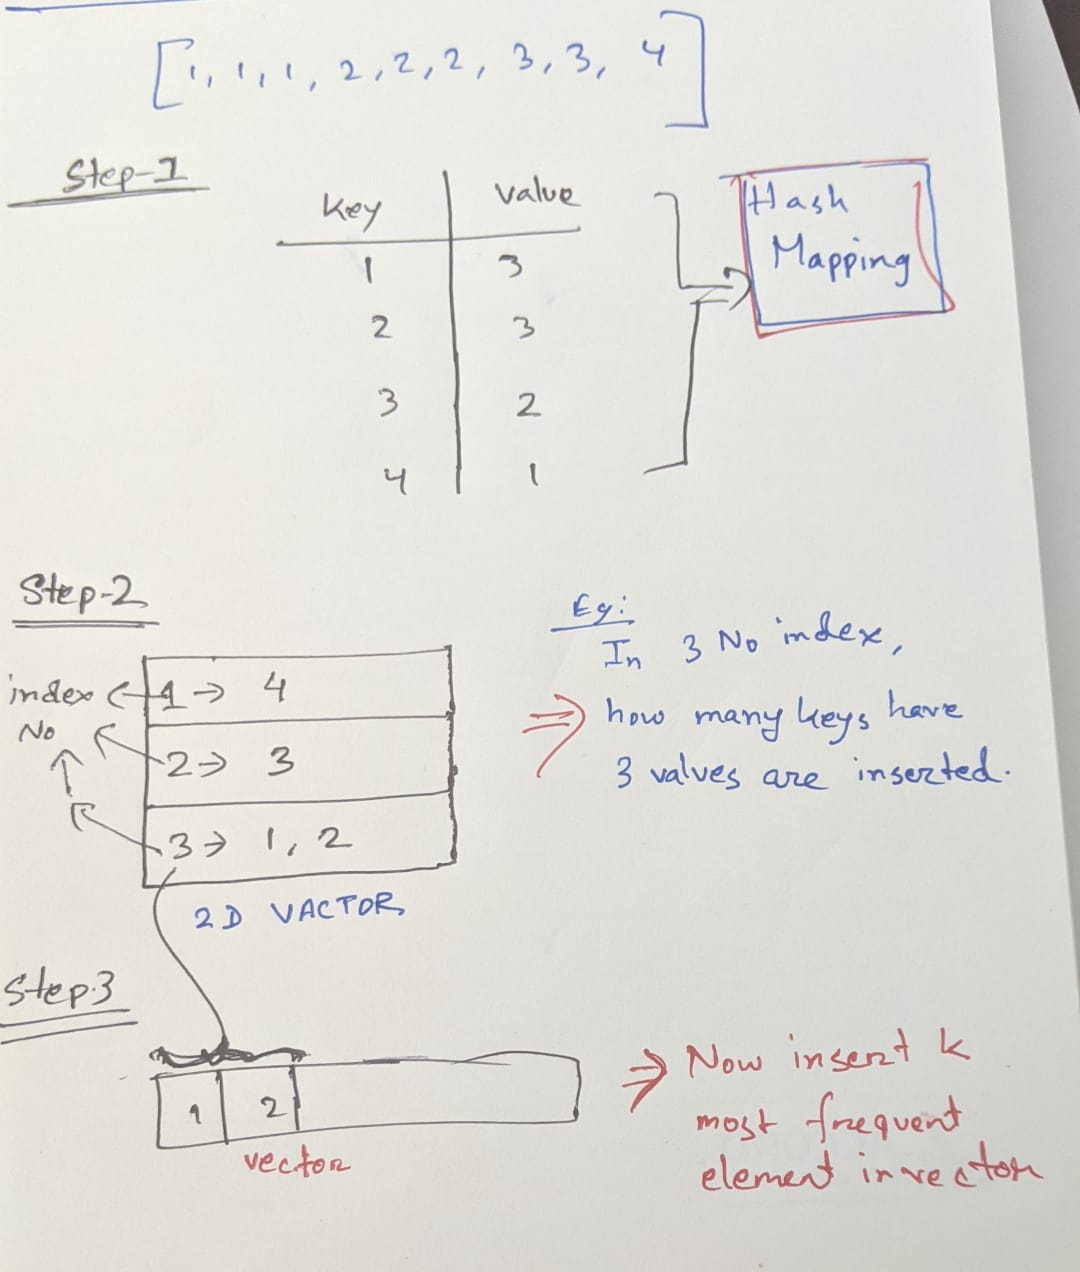 [1, 1, 1, 2, 2, 2, 3, 3, 4]
Step-1
Key value
1 3
2 3
3 2
4 1
Hash
Mapping
Step-2
index 1 → 4
No
2 → 3
3 → 1, 2
2D VACTOR
Eg:
In 3 No index,
⇒ how many keys have
3 values are inserted.
Step-3
1 2
vector
⇒ Now insert k
most frequent
element in vector